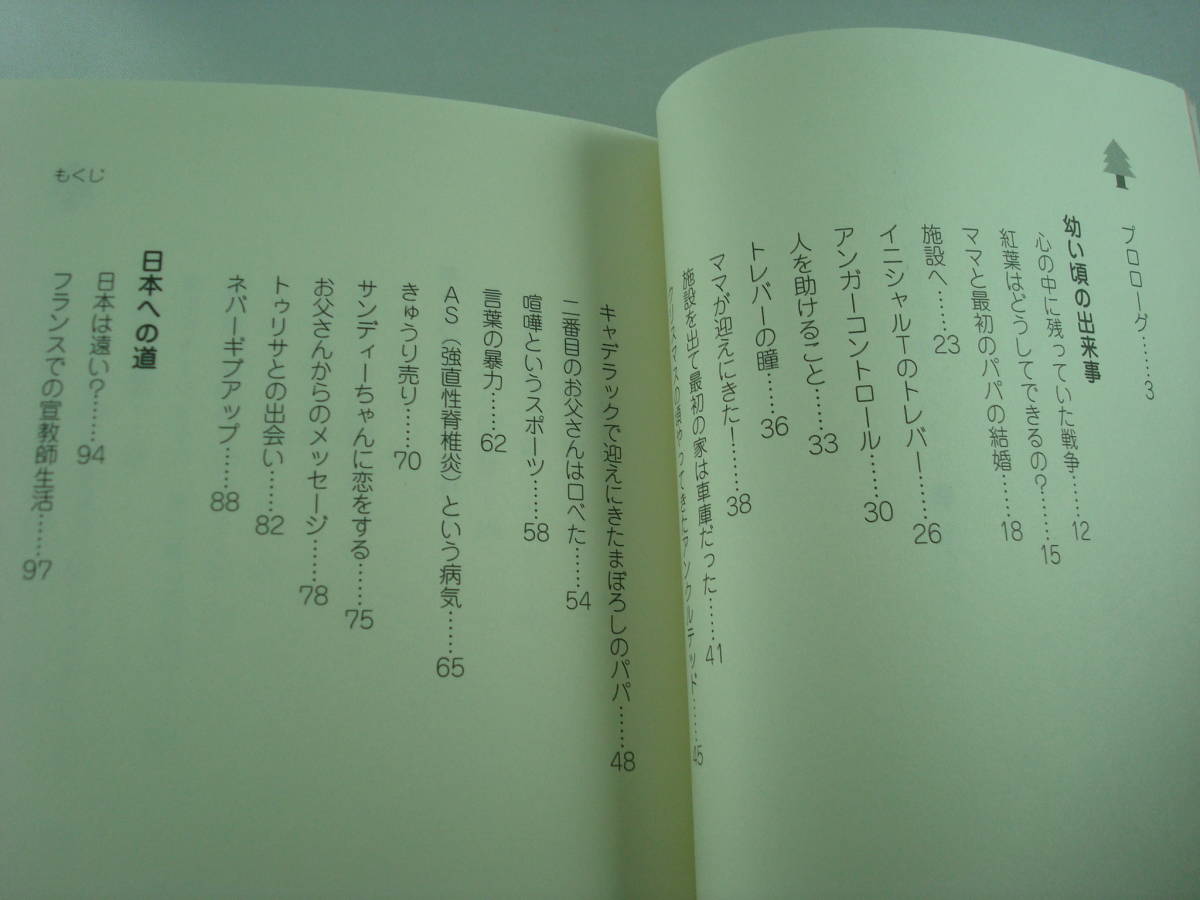 プロローグ……3
幼い頃の出来事
心の中に残っていた戦争……12
紅葉はどうしてできるの?……15
ママと最初のパパの結婚……18
施設へ……23
イニシャルTのトレバー……26
アンガーコントロール……30
人を助けること……33
トレバーの瞳……36
ママが迎えにきた!……38
施設を出て最初の家は車庫だった……41
クリスマスの頃やってきたアンクルテッド……45
キャデラックで迎えにきたまぼろしのパパ……48
二番目のお父さんは口べた……54
喧嘩というスポーツ……58
言葉の暴力……62
AS(強直性脊椎炎)という病気……65
きゅうり売り……70
サンディーちゃんに恋をする……75
お父さんからのメッセージ……78
トゥリサとの出会い……82
ネバーギブアップ……88
日本への道
日本は遠い?……94
フランスでの宣教師生活……97
もくじ